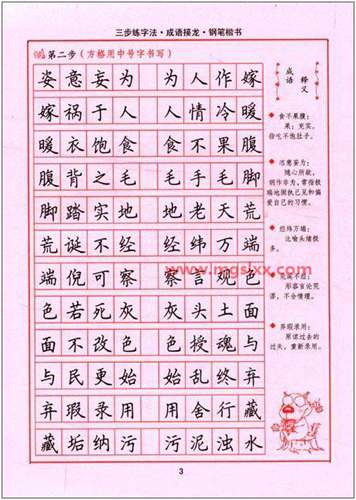 三步练字法·成语接龙·钢笔楷书
第二步(方格用中号字书写)
姿意妄为 为人作嫁
嫁祸于人 人情冷暖
暖衣饱食 食不果腹
腹背之毛 毛手毛脚
脚踏实地 地老天荒
荒诞不经 经纬万端
端倪可察 察言观色
色若死灰 灰头土面
面不改色 色授魂与
与民更始 始乱终弃
弃瑕录用 用舍行藏
藏垢纳污 污泥浊水
成语
释义
食不果腹:
果:充实。
指吃不饱肚子。
恣意妄为:
随心所欲,
胡作非为。常指极
端地固执己见和偏
爱自己的习惯。
经纬万端:
比喻头绪极
多。
荒诞不经:
形容言论荒
谬,不合情理。
弃瑕录用:
原谅过去的
过失,重新录用。
www.mgslxx.com
3